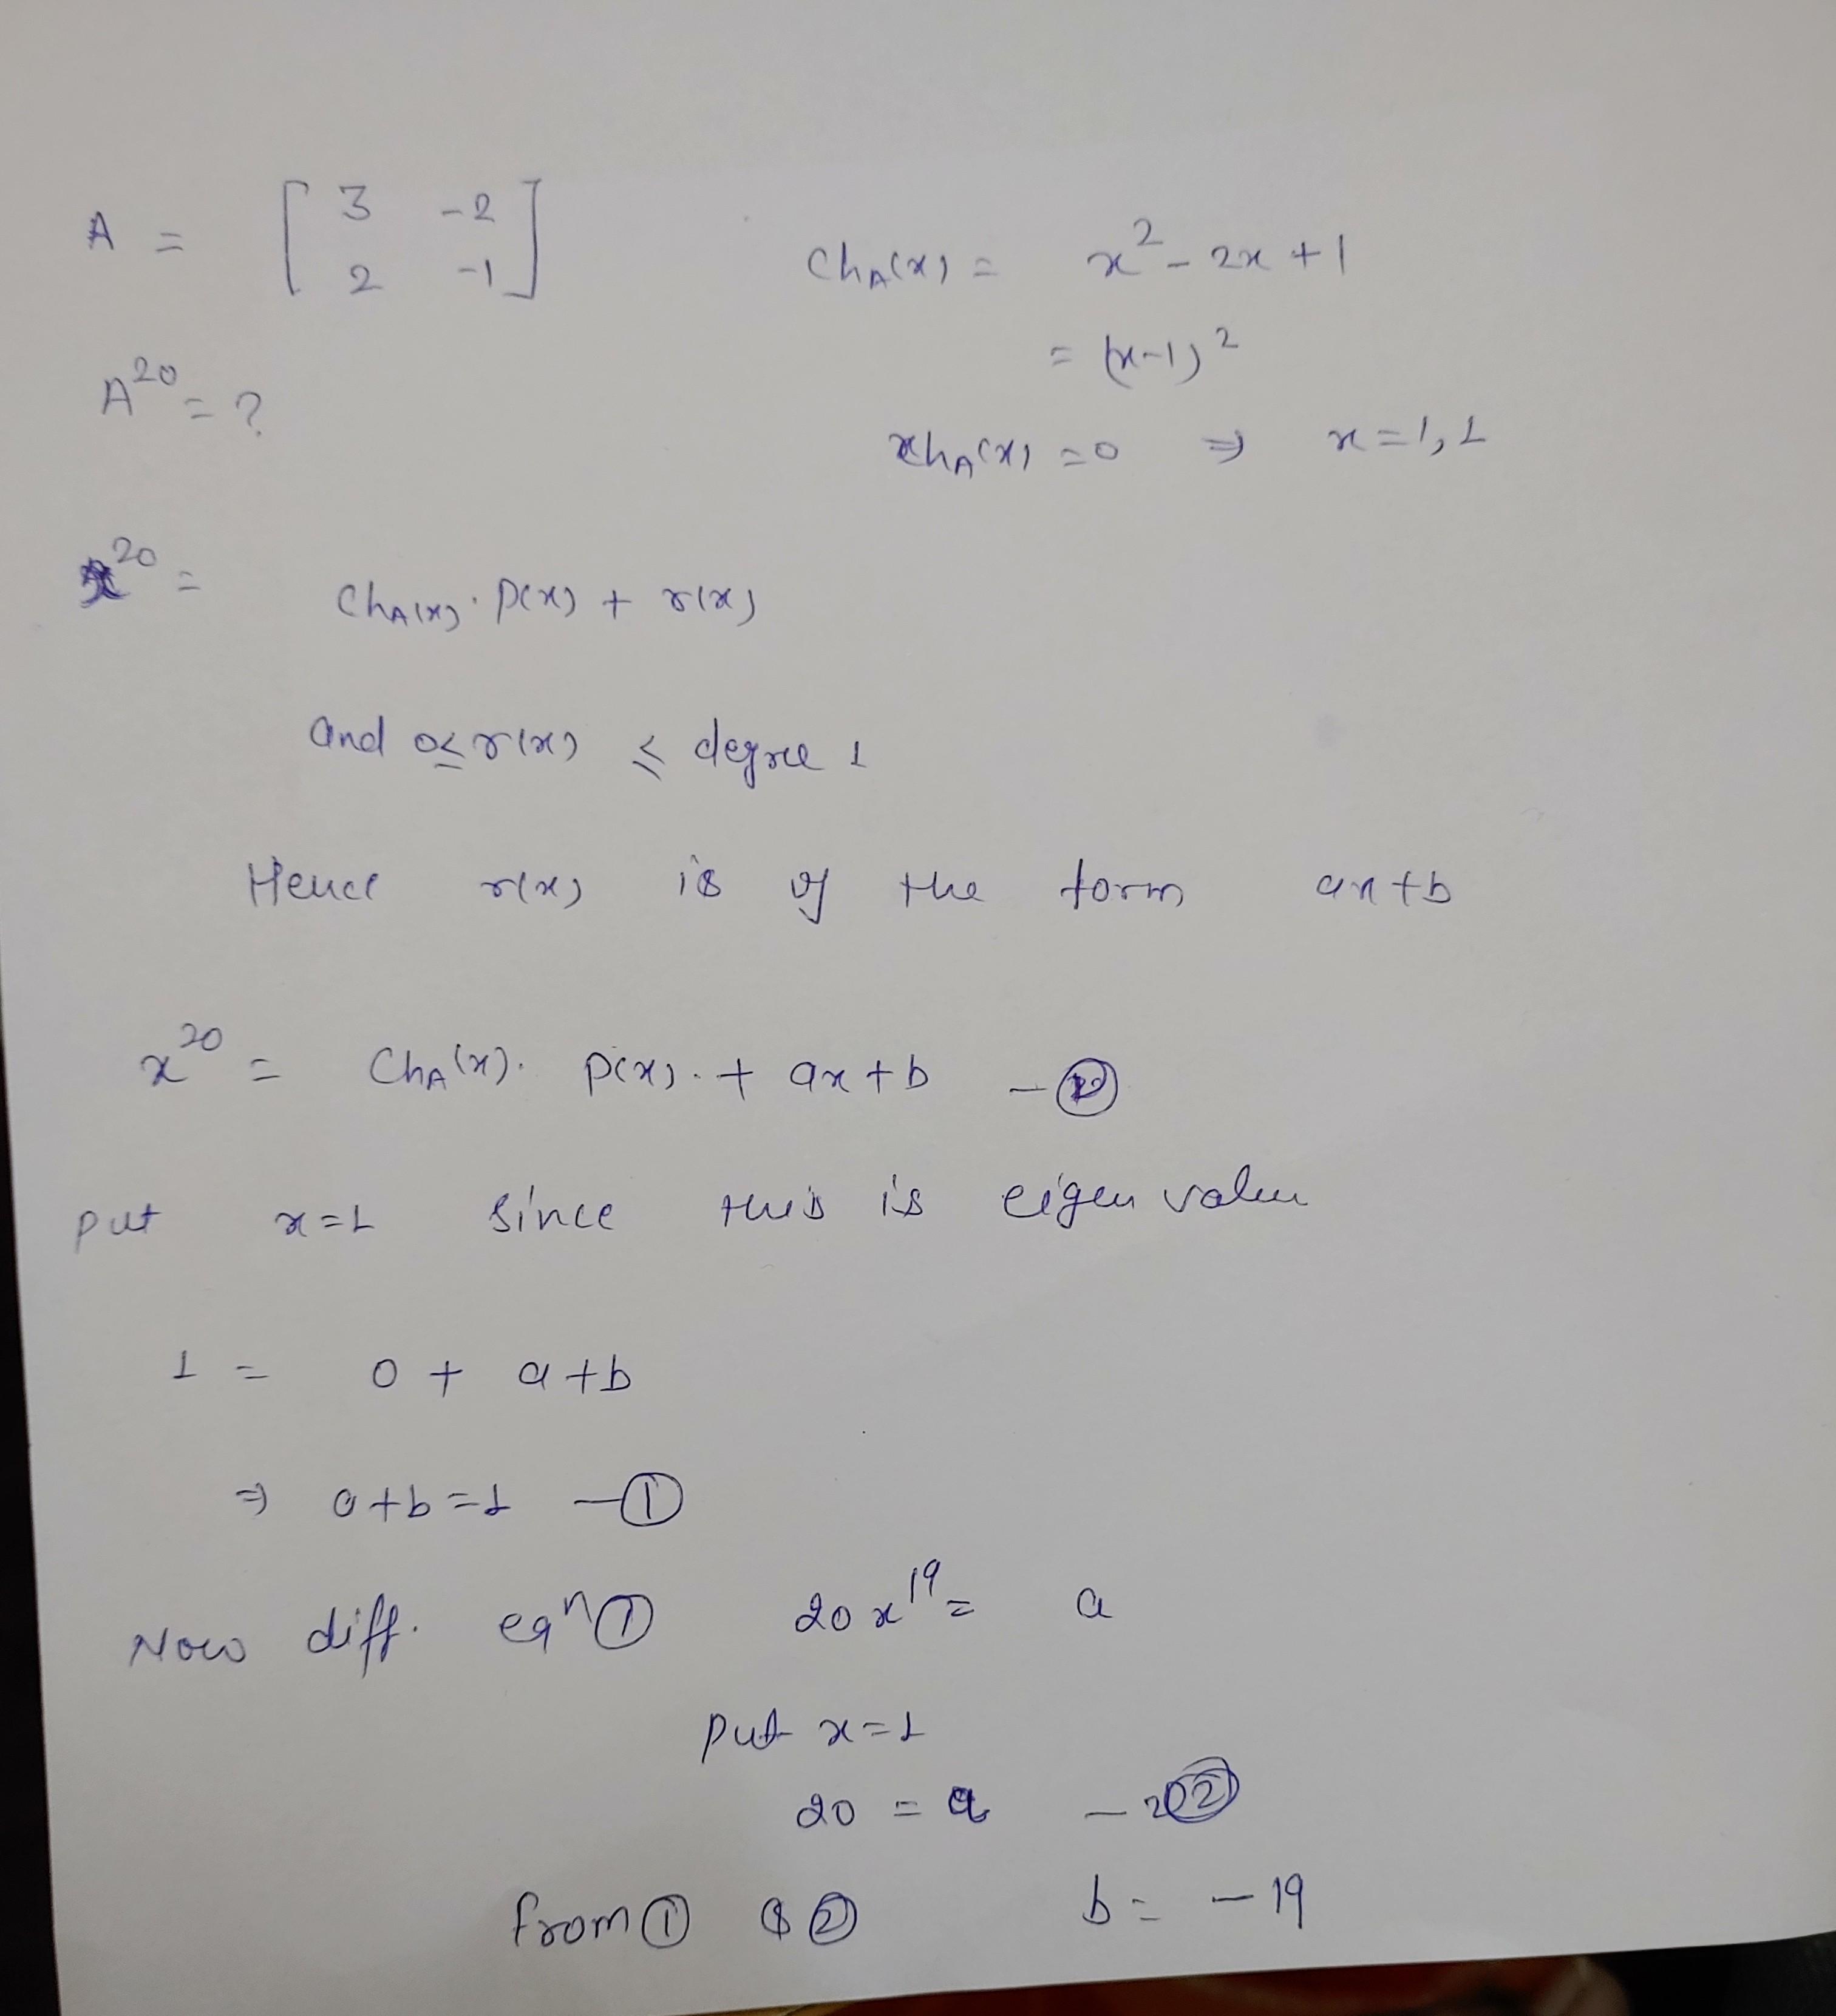 A = [ 3 -2
2 -1 ]
Ch_A(x) = x² - 2x + 1
= (x-1)²
A²⁰ = ?
Ch_A(x) = 0 ⇒ x = 1, 1
x²⁰ = Ch_A(x) . P(x) + r(x)
and 0 ≤ r(x) ≤ degree 1
Hence r(x) is of the form ax+b
x²⁰ = Ch_A(x). P(x). + ax + b -
put x=1 since this is eigen value
1 = 0 + a + b
⇒ a + b = 1 - ①
Now diff. eqⁿ ① 20x¹⁹ = a
put x=1
20 = a - ②
from ① & ② b = - 19